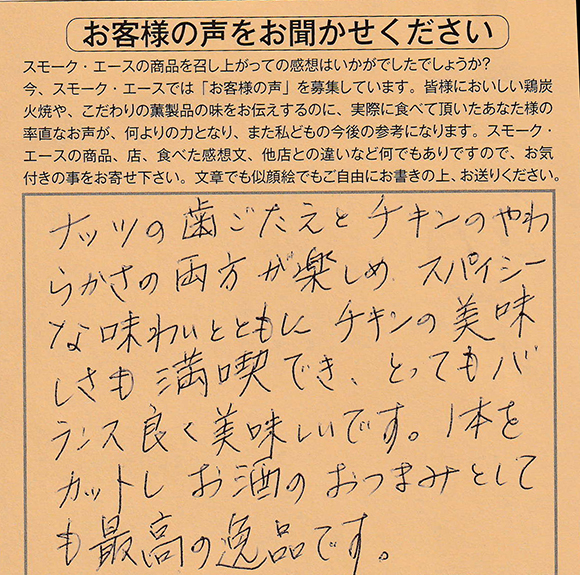 お客様の声をお聞かせください
スモーク・エースの商品を召し上がっての感想はいかがでしたでしょうか?
今、スモーク・エースでは「お客様の声」を募集しています。皆様においしい鶏炭
火焼や、こだわりの薫製品の味をお伝えするのに、実際に食べて頂いたあなた様の
率直なお声が、何よりの力となり、また私どもの今後の参考になります。スモーク・
エースの商品、店、食べた感想文、他店との違いなど何でもありですので、お気
付きの事をお寄せ下さい。文章でも似顔絵でもご自由にお書きの上、お送りください。
ナッツの歯ごたえとチキンのやわ
らかさの両方が楽しめ、スパイシー
な味わいとともに チキンの美味
しさも満喫でき、とってもバ
ランス良く美味しいです。1本を
カットし お酒のおつまみとして
も最高の逸品です。